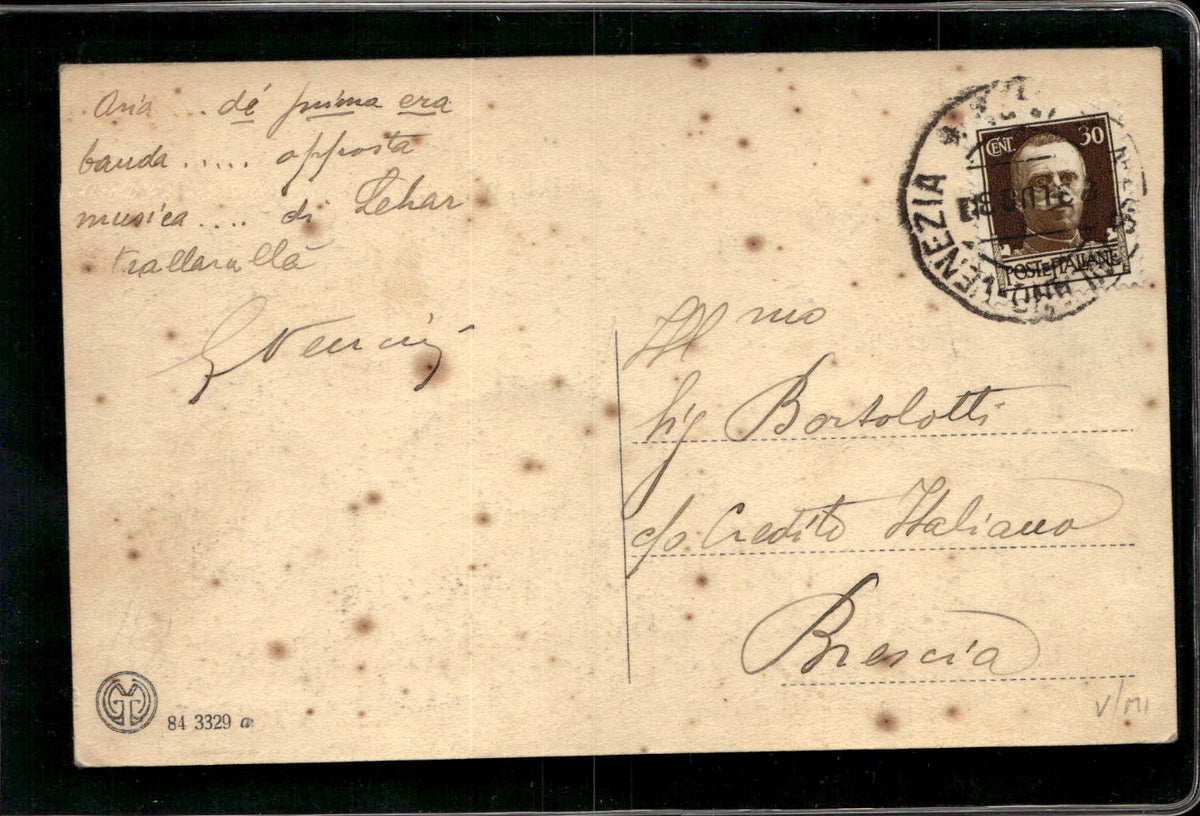 Aria ... dé prima era
banda ..... opposta
musica .... di Lehar
trallarallà
Ill mo
Sig Bortolotti
c/o Credito Italiano
Brescia
CENT. 30
POSTE ITALIANE
VENEZIA
84 3329 a
V/MI